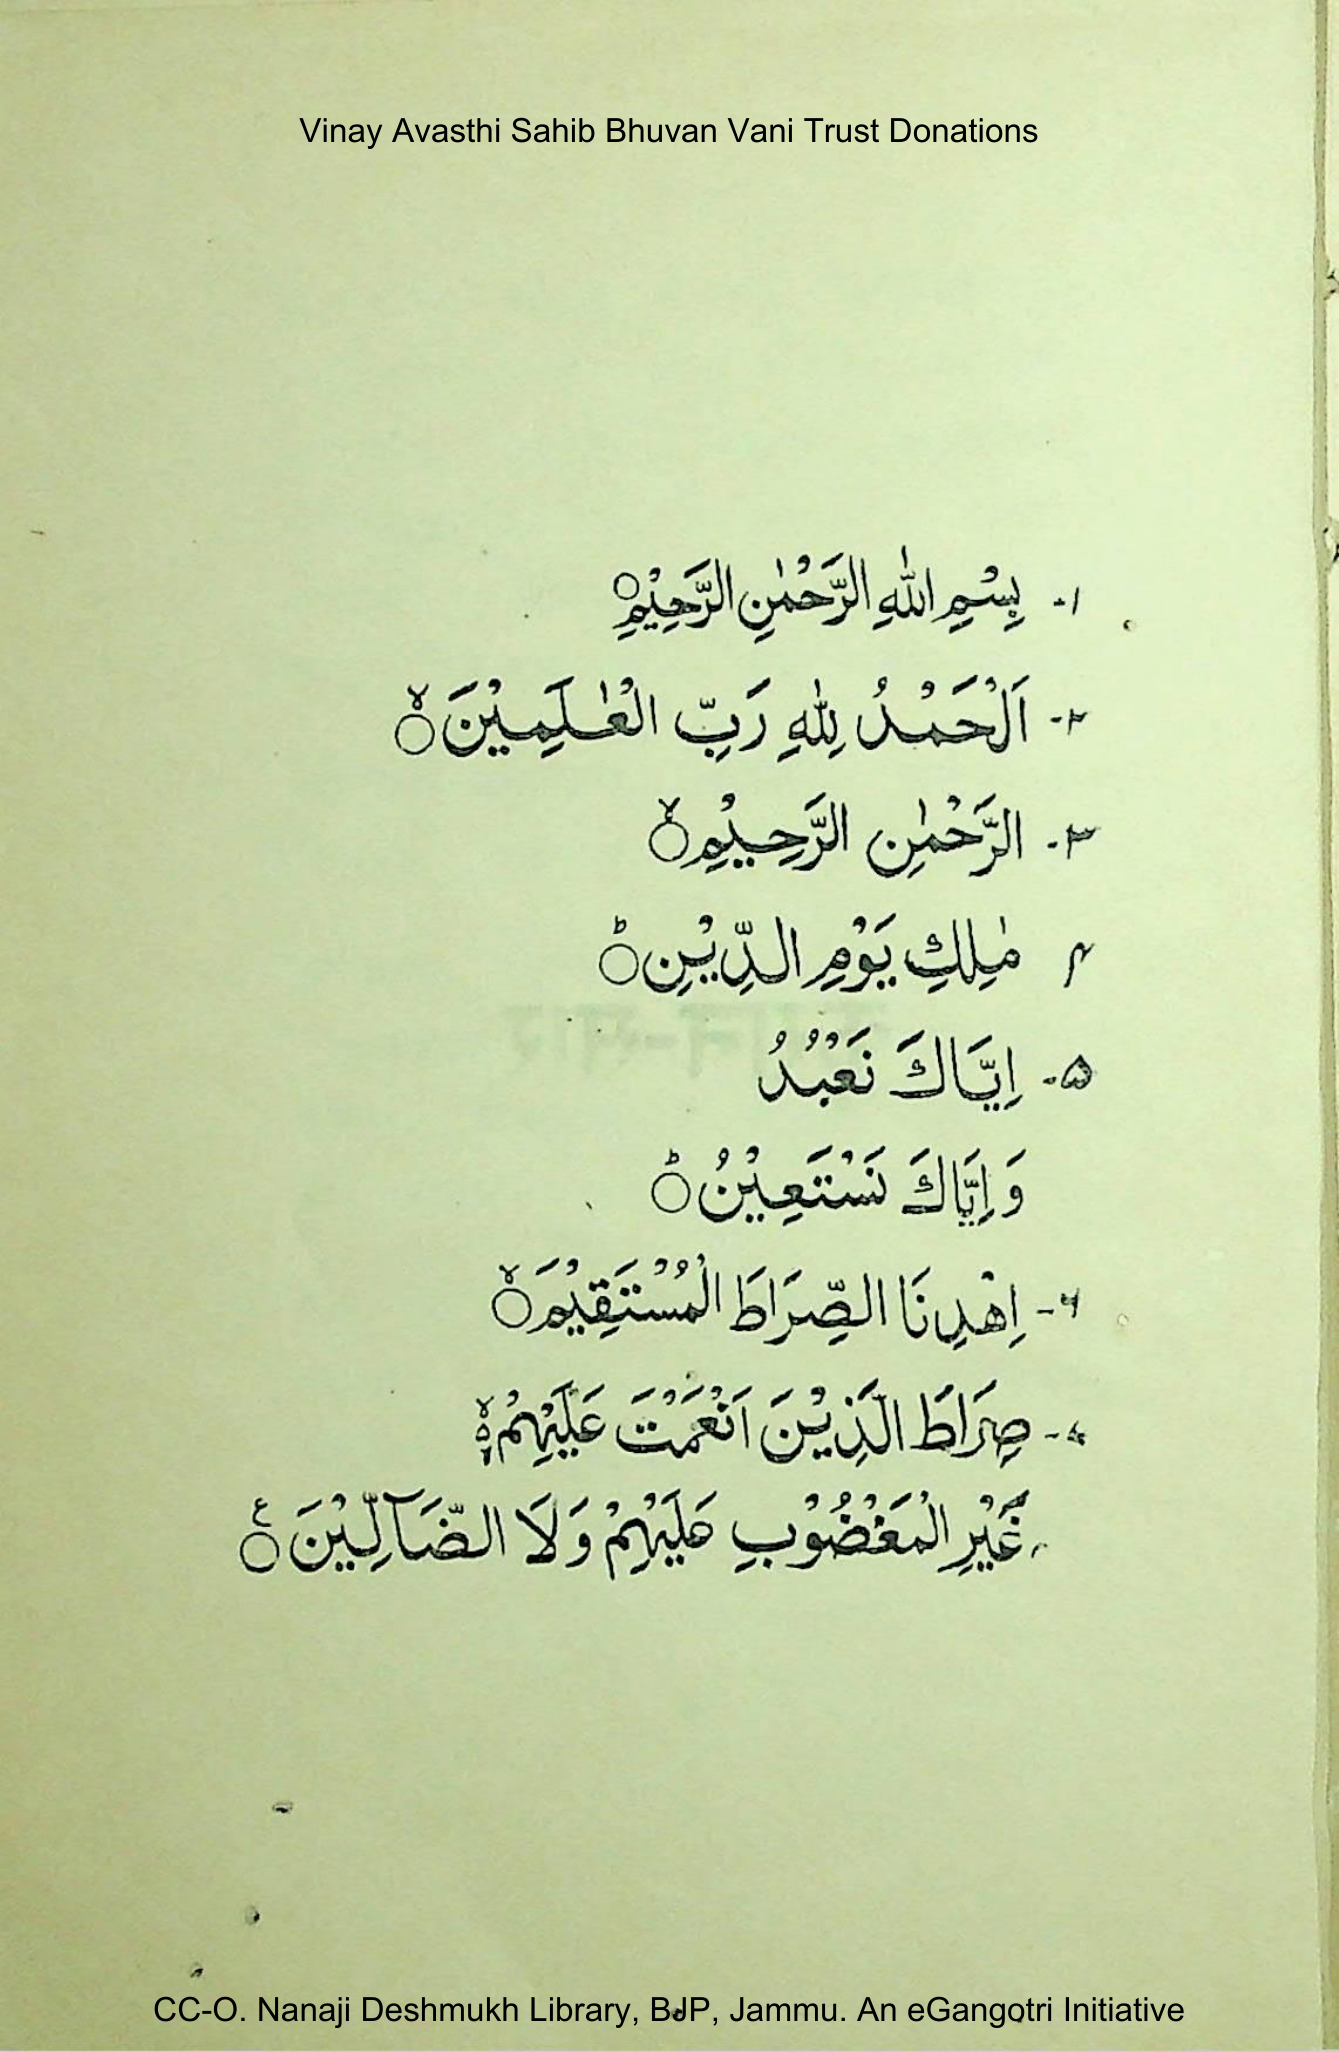 Vinay Avasthi Sahib Bhuvan Vani Trust Donations
۱- بِسْمِ اللّٰهِ الرَّحْمٰنِ الرَّحِيْمِ ○
۲- اَلْحَمْدُ لِلّٰهِ رَبِّ الْعٰلَمِيْنَ ۙ○
۳- الرَّحْمٰنِ الرَّحِيْمِ ۙ○
۴ مٰلِكِ يَوْمِ الدِّيْنِ ؕ○
۵- اِيَّاكَ نَعْبُدُ
وَ اِيَّاكَ نَسْتَعِيْنُ ؕ○
۶- اِهْدِنَا الصِّرَاطَ الْمُسْتَقِيْمَ ۙ○
۷- صِرَاطَ الَّذِيْنَ اَنْعَمْتَ عَلَيْهِمْ ۙ۬
غَيْرِ الْمَغْضُوْبِ عَلَيْهِمْ وَلَا الضَّآلِّيْنَ ○ۧ
CC-O. Nanaji Deshmukh Library, BJP, Jammu. An eGangotri Initiative